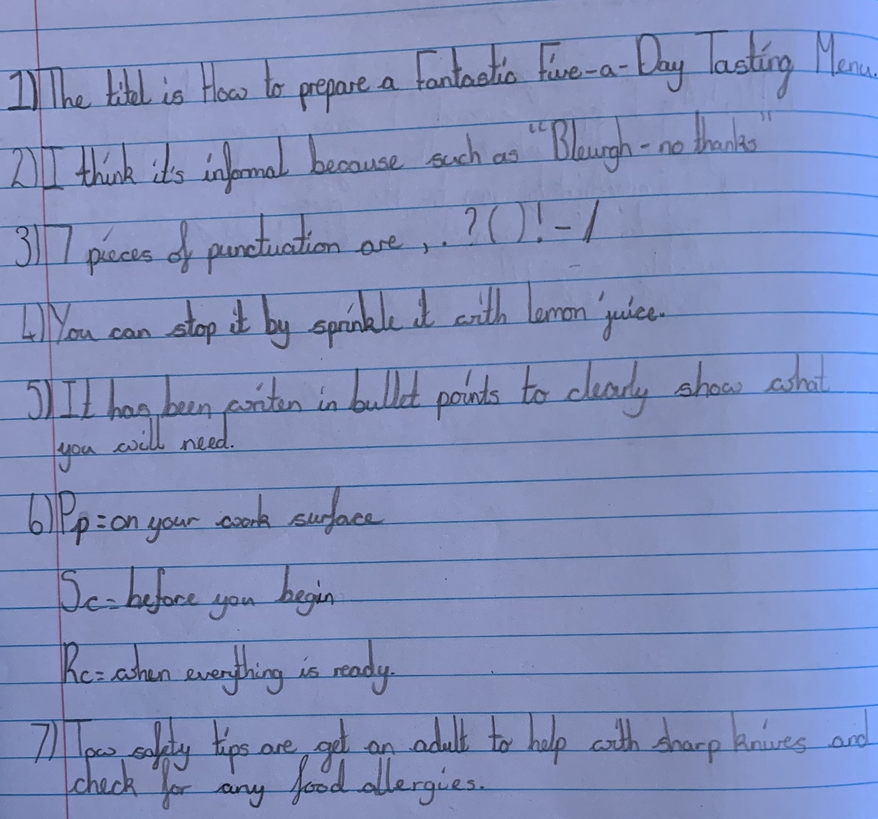 1) The titel is How to prepare a Fantastic Five-a-Day Tasting Menu.
2) I think it's informal because such as "Bleurgh - no thanks"
3) 7 pieces of punctuation are , . ? ( ) ! - /
4) You can stop it by sprinkle it with lemon juice.
5) It has been writen in bullet points to clearly show what
you will need.
6) Pp = on your work surface
Sc = before you begin
Rc = when everything is ready.
7) Tow safety tips are get an adult to help with sharp knives and
check for any food allergies.